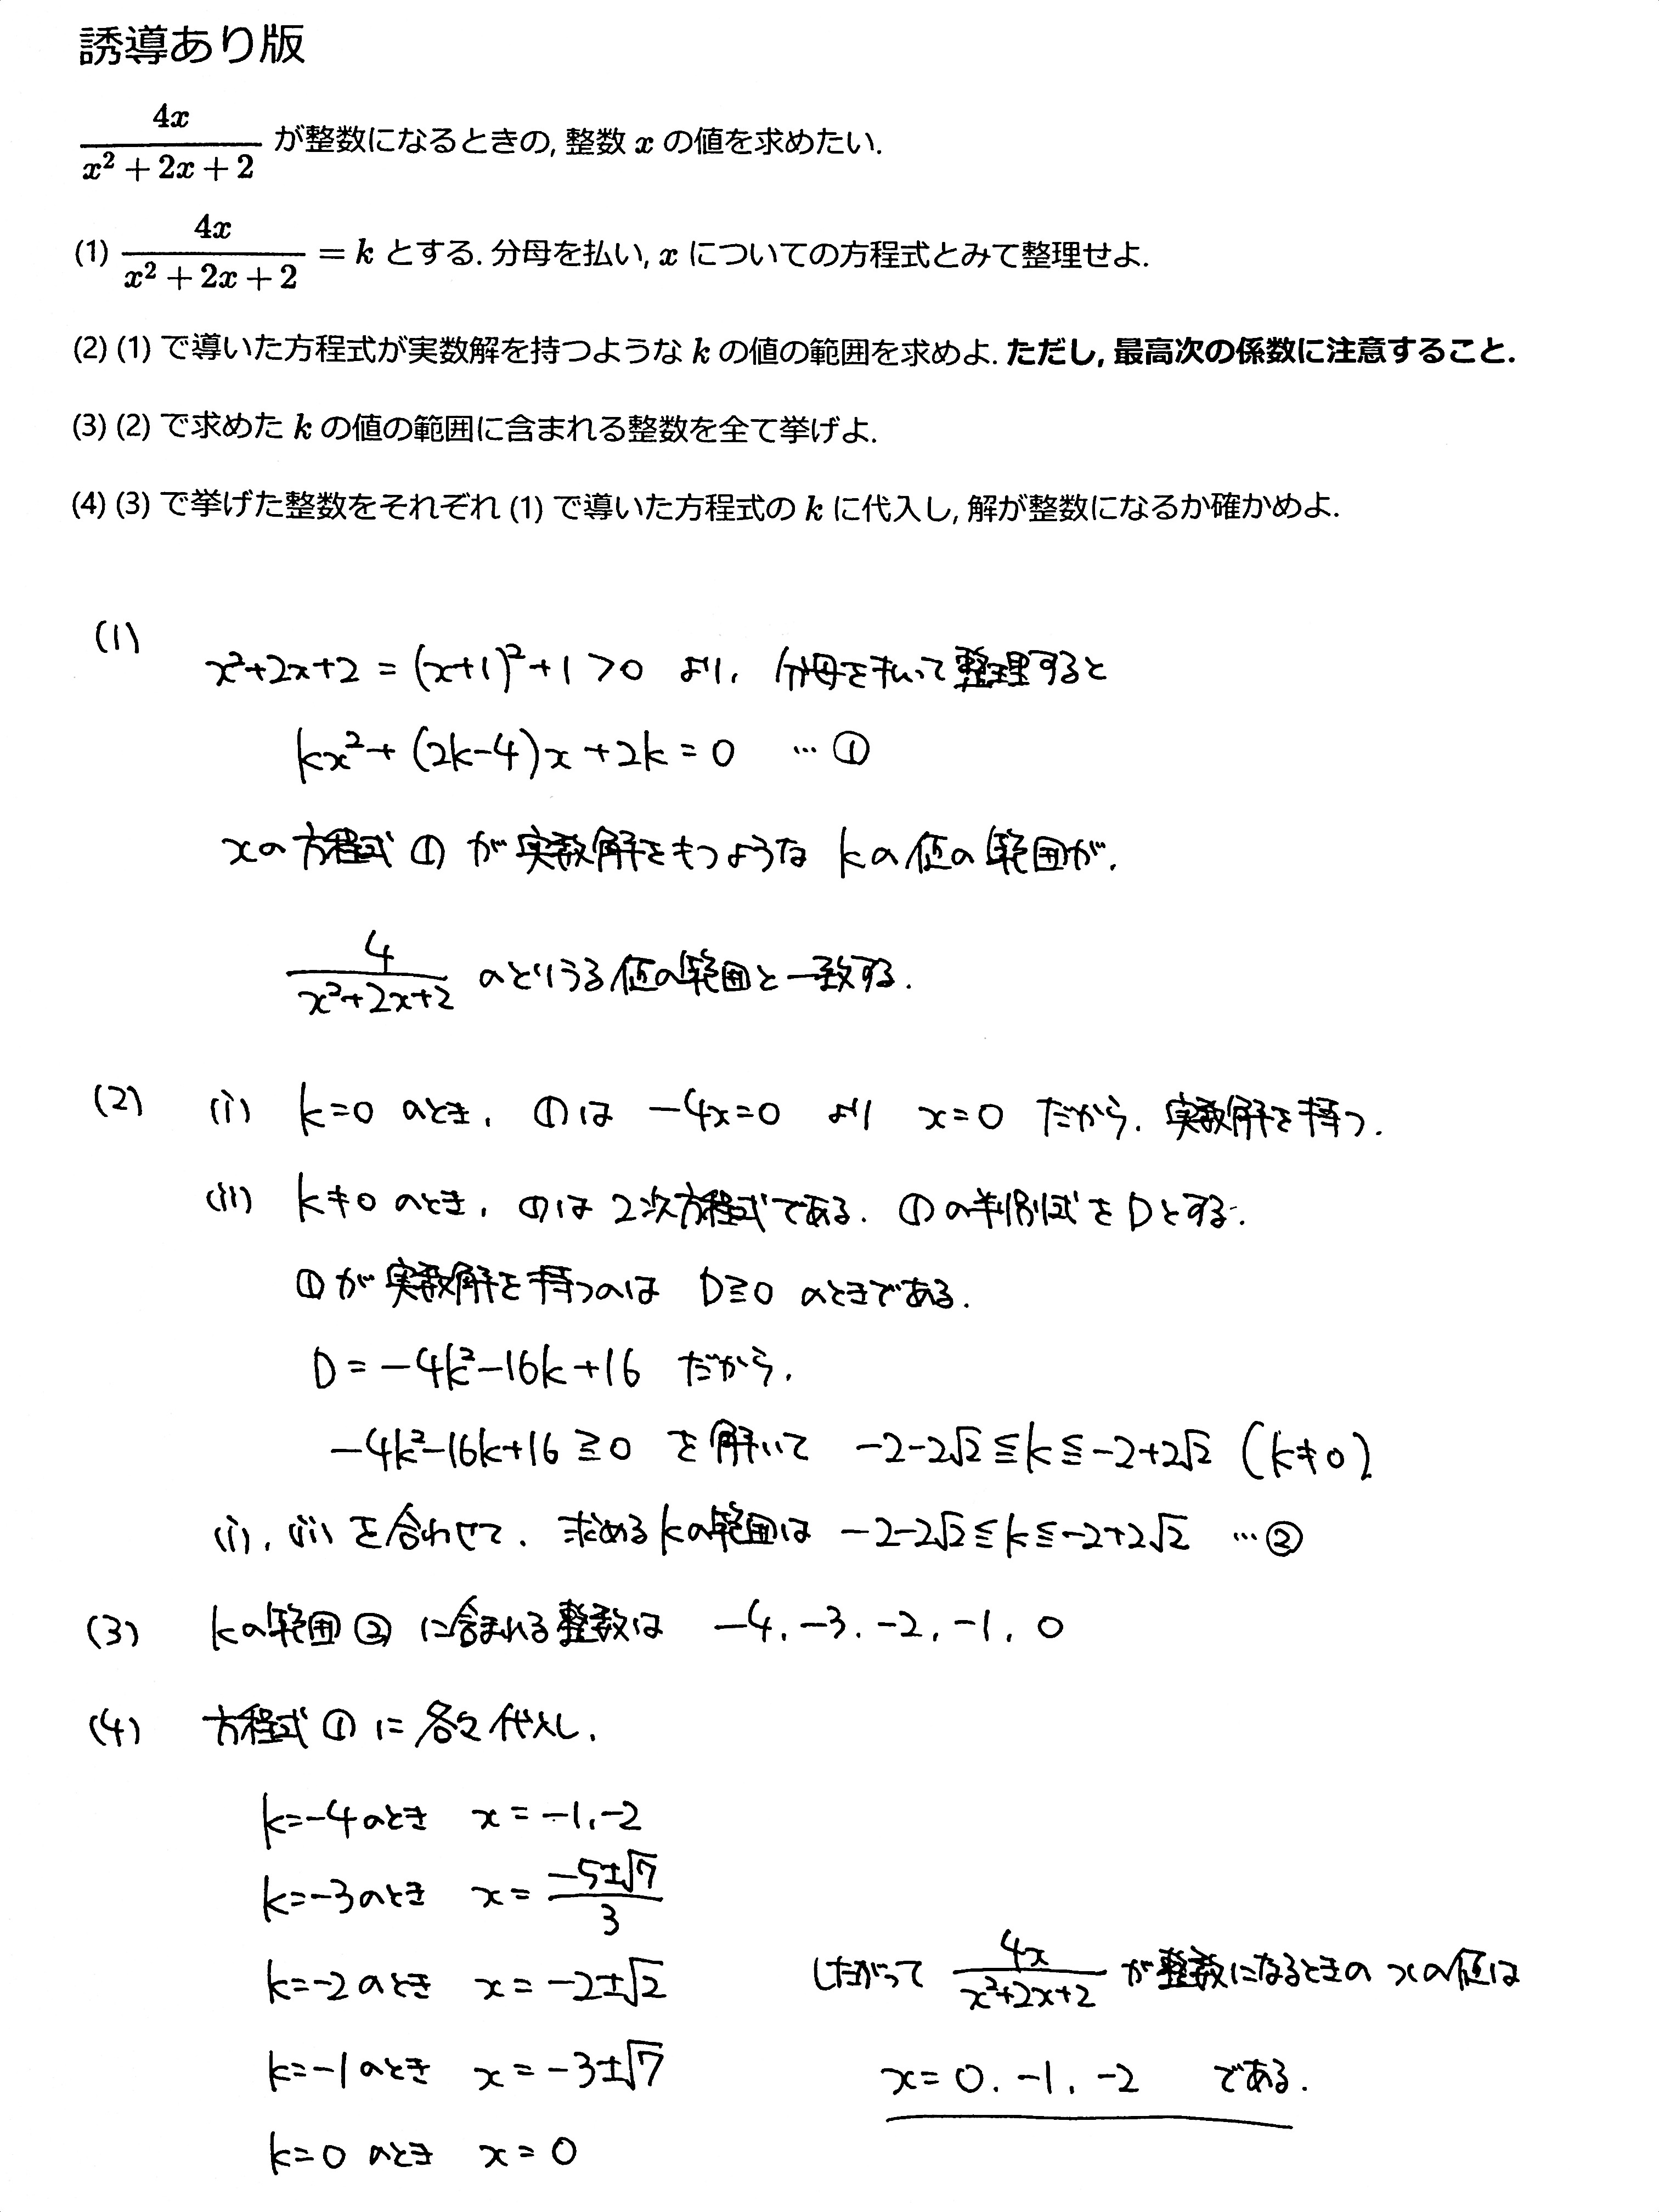 誘導あり版
$\dfrac{4x}{x^2+2x+2}$ が整数になるときの, 整数 $x$ の値を求めたい.
(1) $\dfrac{4x}{x^2+2x+2} = k$ とする. 分母を払い, $x$ についての方程式とみて整理せよ.
(2) (1) で導いた方程式が実数解を持つような $k$ の値の範囲を求めよ. ただし, 最高次の係数に注意すること.
(3) (2) で求めた $k$ の値の範囲に含まれる整数を全て挙げよ.
(4) (3) で挙げた整数をそれぞれ (1) で導いた方程式の $k$ に代入し, 解が整数になるか確かめよ.
(1)
$x^2+2x+2 = (x+1)^2+1 > 0$ より, 分母を払って整理すると
$kx^2+(2k-4)x+2k=0$ … ①
$x$の方程式 ① が実数解をもつような $k$の値の範囲が,
$\dfrac{4}{x^2+2x+2}$ のとりうる値の範囲と一致する.
(2) (i) $k=0$ のとき, ①は $-4x=0$ より $x=0$ だから, 実数解を持つ.
(ii) $k \neq 0$ のとき, ①は 2次方程式である. ①の判別式を $D$とする.
①が実数解を持つのは $D \geqq 0$ のときである.
$D = -4k^2-16k+16$ だから,
$-4k^2-16k+16 \geqq 0$ を解いて $-2-2\sqrt{2} \leqq k \leqq -2+2\sqrt{2}$ $(k \neq 0)$
(i), (ii) を合わせて, 求める$k$の範囲は $-2-2\sqrt{2} \leqq k \leqq -2+2\sqrt{2}$ … ②
(3) $k$の範囲②に含まれる整数は $-4, -3, -2, -1, 0$
(4) 方程式①に各々代入し,
$k=-4$のとき $x=-1, -2$
$k=-3$のとき $x=\dfrac{-5\pm\sqrt{7}}{3}$
$k=-2$のとき $x=-2\pm\sqrt{2}$
$k=-1$のとき $x=-3\pm\sqrt{7}$
$k=0$のとき $x=0$
したがって $\dfrac{4x}{x^2+2x+2}$ が整数になるときの $x$の値は
$x=0, -1, -2$ である.